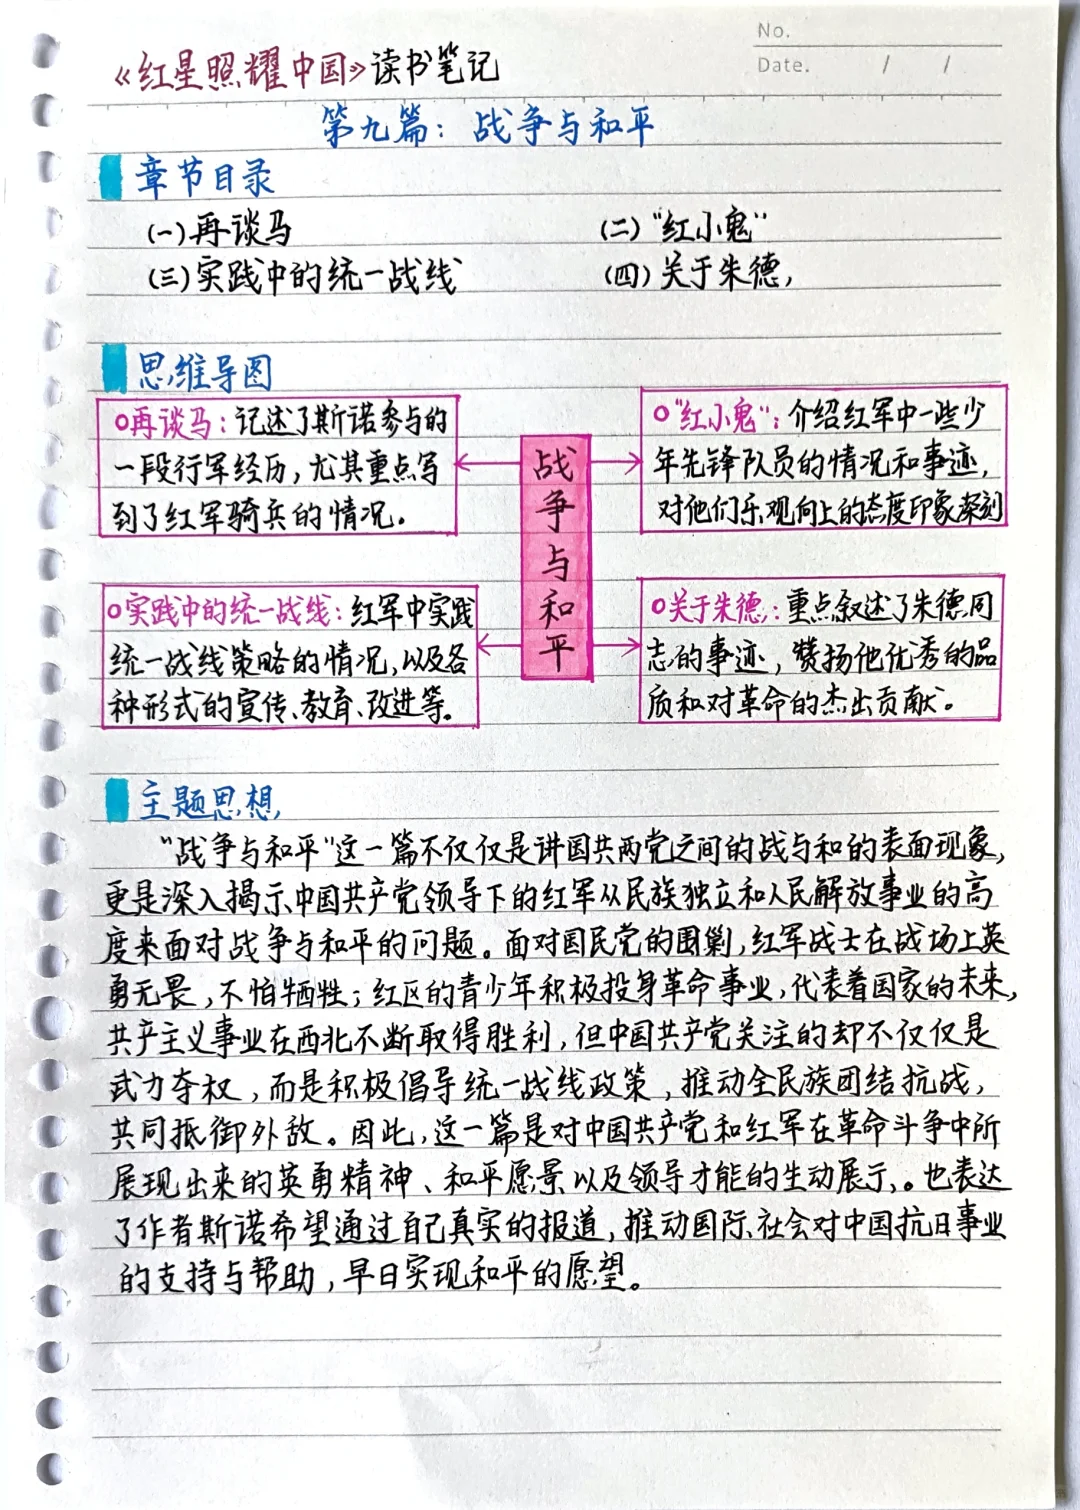 No.
Date. / /
《红星照耀中国》读书笔记
第九篇：战争与和平
章节目录
(一)再谈马 (二)“红小鬼”
(三)实践中的统一战线 (四)关于朱德
思维导图
再谈马：记述了斯诺参与的
一段行军经历，尤其重点写
到了红军骑兵的情况。
“红小鬼”：介绍红军中一些少
年先锋队员的情况和事迹，
对他们乐观向上的态度印象深刻
战争与和平
实践中的统一战线：红军中实践
统一战线策略的情况，以及各
种形式的宣传、教育、改进等。
关于朱德：重点叙述了朱德同
志的事迹，赞扬他优秀的品
质和对革命的杰出贡献。
主题思想
“战争与和平”这一篇不仅仅是讲国共两党之间的战与和的表面现象，
更是深入揭示中国共产党领导下的红军从民族独立和人民解放事业的高
度来面对战争与和平的问题。面对国民党的围剿，红军战士在战场上英
勇无畏，不怕牺牲；红区的青少年积极投身革命事业，代表着国家的未来，
共产主义事业在西北不断取得胜利，但中国共产党关注的却不仅仅是
武力夺权，而是积极倡导统一战线政策，推动全民族团结抗战，
共同抵御外敌。因此，这一篇是对中国共产党和红军在革命斗争中所
展现出来的英勇精神、和平愿景以及领导才能的生动展示。也表达
了作者斯诺希望通过自己真实的报道，推动国际社会对中国抗日事业
的支持与帮助，早日实现和平的愿望。